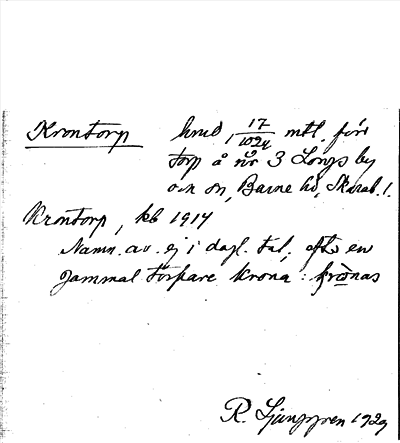 Krontorp hmd, 17/1024 mtl. förr
torp å nr 3 Longs by
och sn, Barne hd, Skarab. l.
Krontorp, kb 1917
Namn. av. ej i dagl. tal, efter en
gammal torpare Krona: krònas
R. Ljunggren 1929